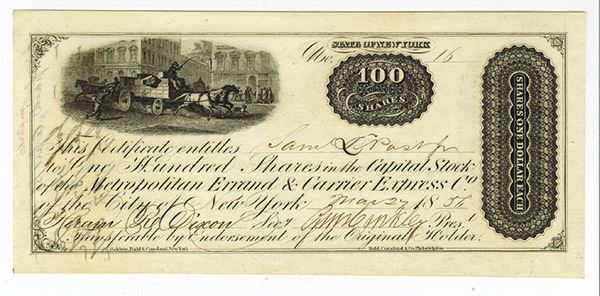 STATE OF NEW YORK
No. 16
100
SHARES
SHARES ONE DOLLAR EACH
This Certificate entitles Sam L Post Jr
to One Hundred Shares in the Capital Stock
of the Metropolitan Errand & Carrier Express Co.
of the City of New York May 27 1856
Dixon Secy. Hinckley Prest.
Transferable by Endorsement of the Original Holder.
Baldwin, Bald & Cousland, New York
Bald, Cousland & Co. Philadelphia